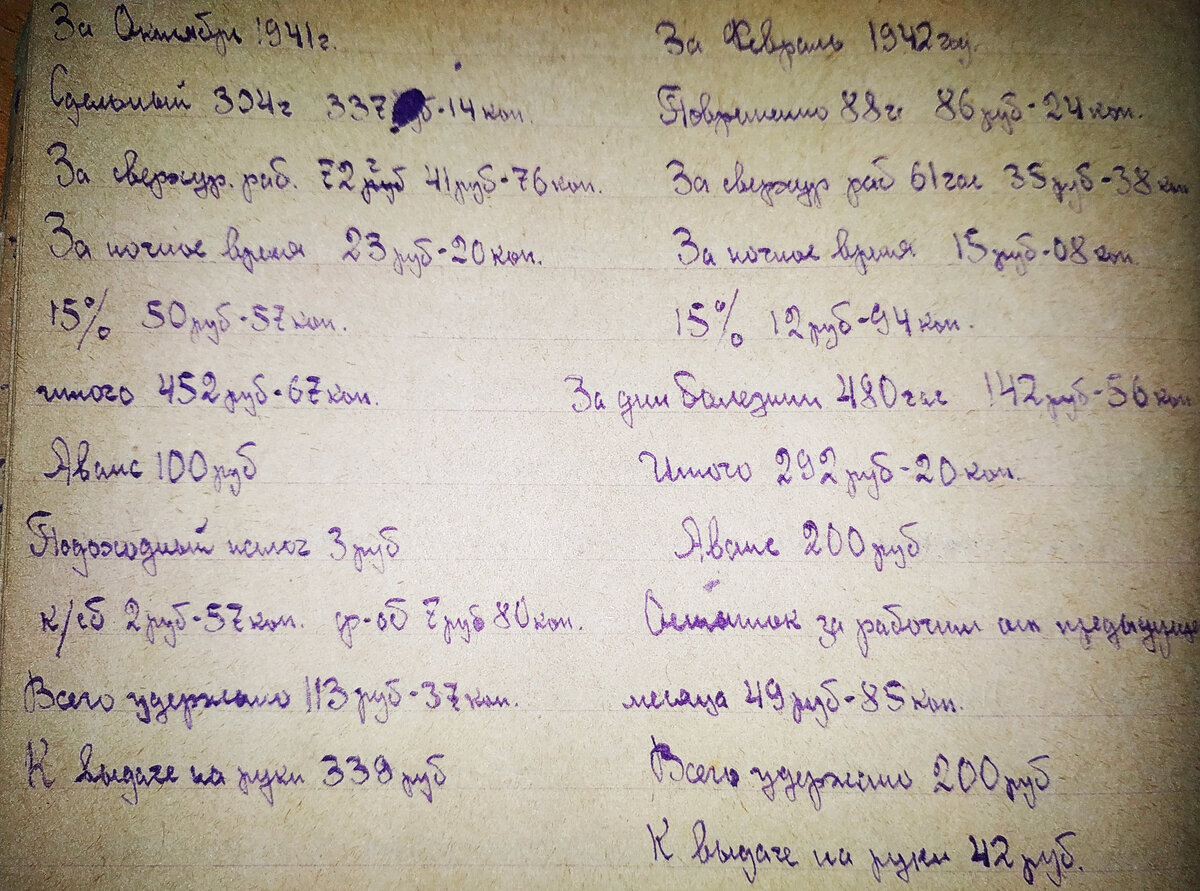 За Октябрь 1941г.
Сдельный 304г 337руб-14коп.
За сверхур. раб. 72г руб 41руб-76коп.
За ночное время 23руб-20коп.
15% 50руб-57коп.
итого 452руб-67коп.
Аванс 100руб
Подоходный налог 3руб
к/сб 2руб-57коп. ср-об 7руб 80коп.
Всего удержано 113руб-37коп.
К выдаче на руки 339руб
За Февраль 1942году.
Повременно 88ч 86руб-24коп.
За сверхур раб 61час 35руб-38коп
За ночное время 15руб-08коп.
15% 12руб-94коп.
За дни болезнии 480час 142руб-56коп
Итого 292руб-20коп.
Аванс 200руб
Остаток за рабочим от предыдуще
месяца 49руб-85коп.
Всего удержано 200руб
К выдаче на руки 42руб.